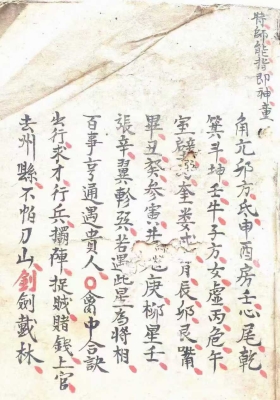 角亢卯方氐申酉房壬心尾乾
箕斗坤壬牛子方女虛丙危午
室壁奎婁胃辰卯艮嘴
畢丑癸参寅井庚柳星壬
張辛翼軫巽若遇此星為將相
百事亨通遇貴人〇禽中合訣
出行求才行兵擺陣捉賊賭錢上官
去州縣不怕刀山劍劍戟林
將師能指即神童